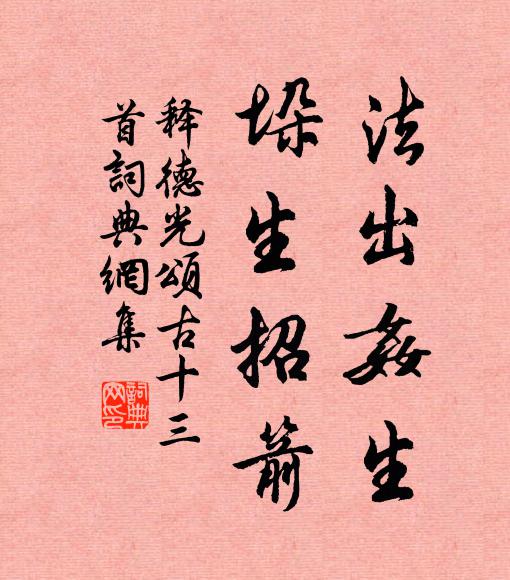 法出姦生
垛生招箭
释德光頌古十三
首詞典網集
詞典
网印